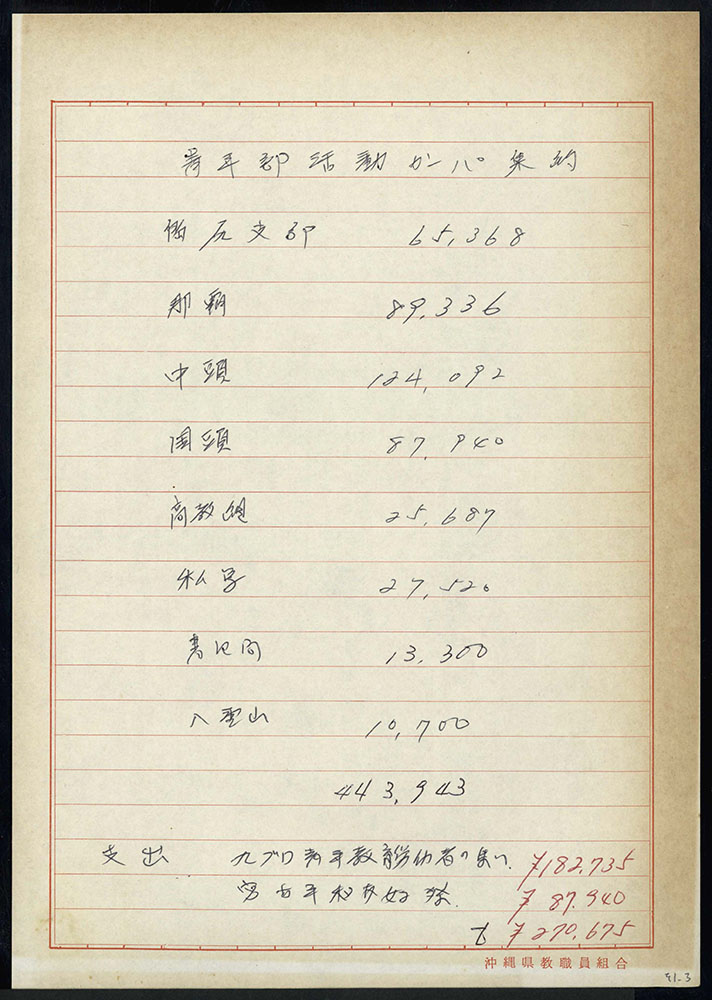 青年部活動カンパ集約
島尻支部 65,368
那覇 89,336
中頭 124,092
国頭 87,940
高教組 25,687
私学 27,520
書記局 13,300
八重山 10,700
443,943
支出 九ブロ青年教育労働者の集い、 182,735
87,940
270,675
沖縄県教職員組合
41-3